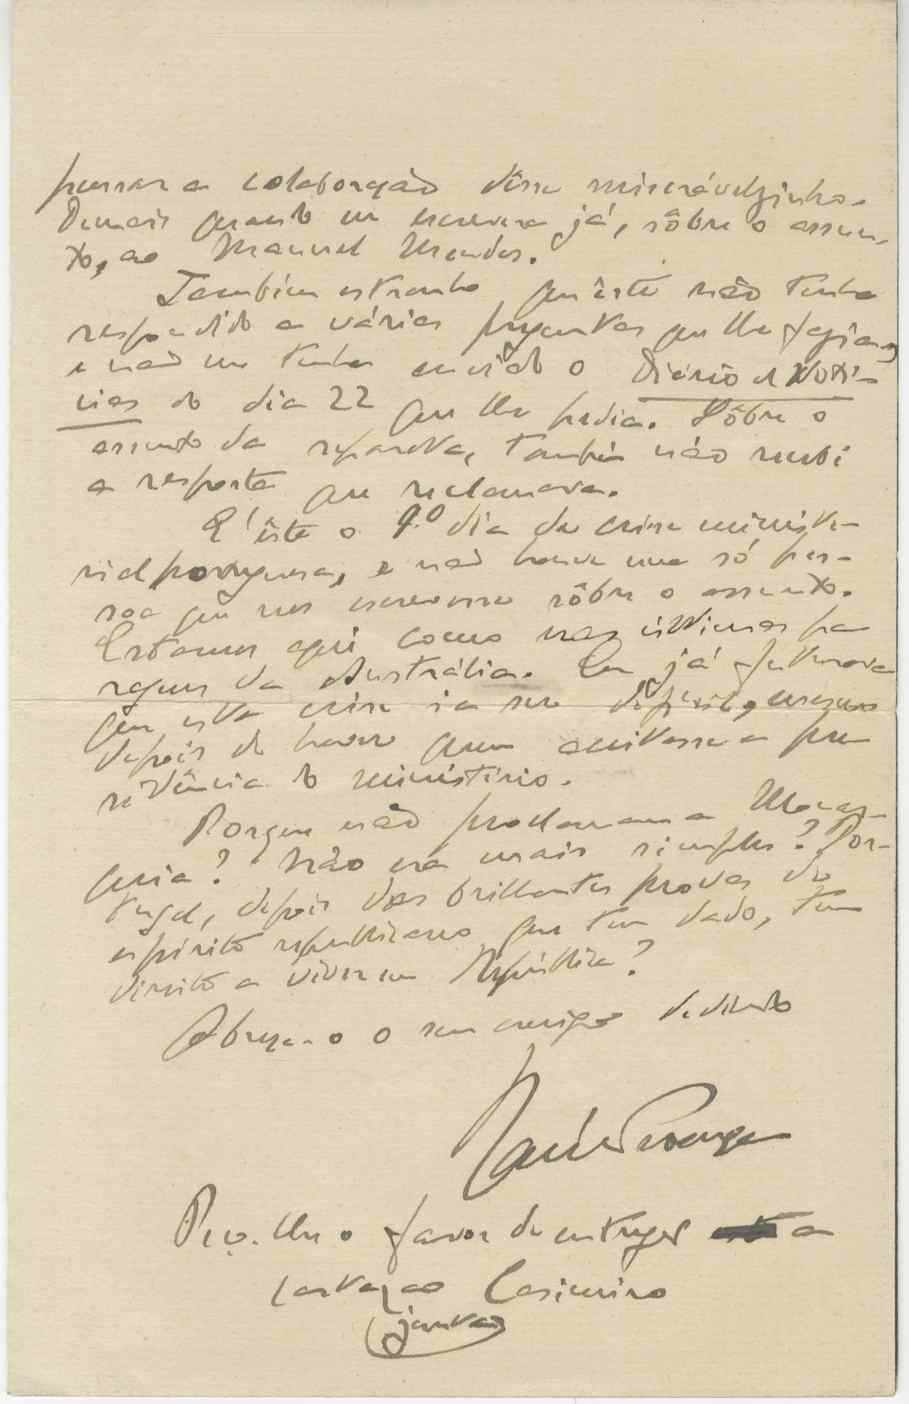 pensar a colaboração dêsse miserávelzinho.
Demais quando eu escrevera já, sôbre o assun-
to, ao Manuel Mendes.
Também estranho que êste não tenha
respondido a várias preguntas que lhe fazia,
e não me tenha enviado o Diário de Notí-
cias do dia 22 que lhe pedia. Sôbre o
assunto da separata, também não recebi
a resposta que reclamava.
E' êste o 9.º dia da crise ministe-
rial portuguesa, e não houve uma só pes-
soa que nos escrevesse sôbre o assunto.
Estamos aqui como nas últimas pa
ragens da Austrália. Eu já
que esta crise ia ser difícil, mesmo
depois de haver quem aceitasse a pre
sidência do ministério.
Porque não proclamam a Monar-
quia? Não era mais simples? Por-
tugal, depois das brilhantes provas do
espírito republicano que tem dado, tem
direito a viver em República?
Abraça-o o seu amigo dedicado
Raúl Proença
Peço-lhe o favor de entregar a
carta ao Casimiro
junta